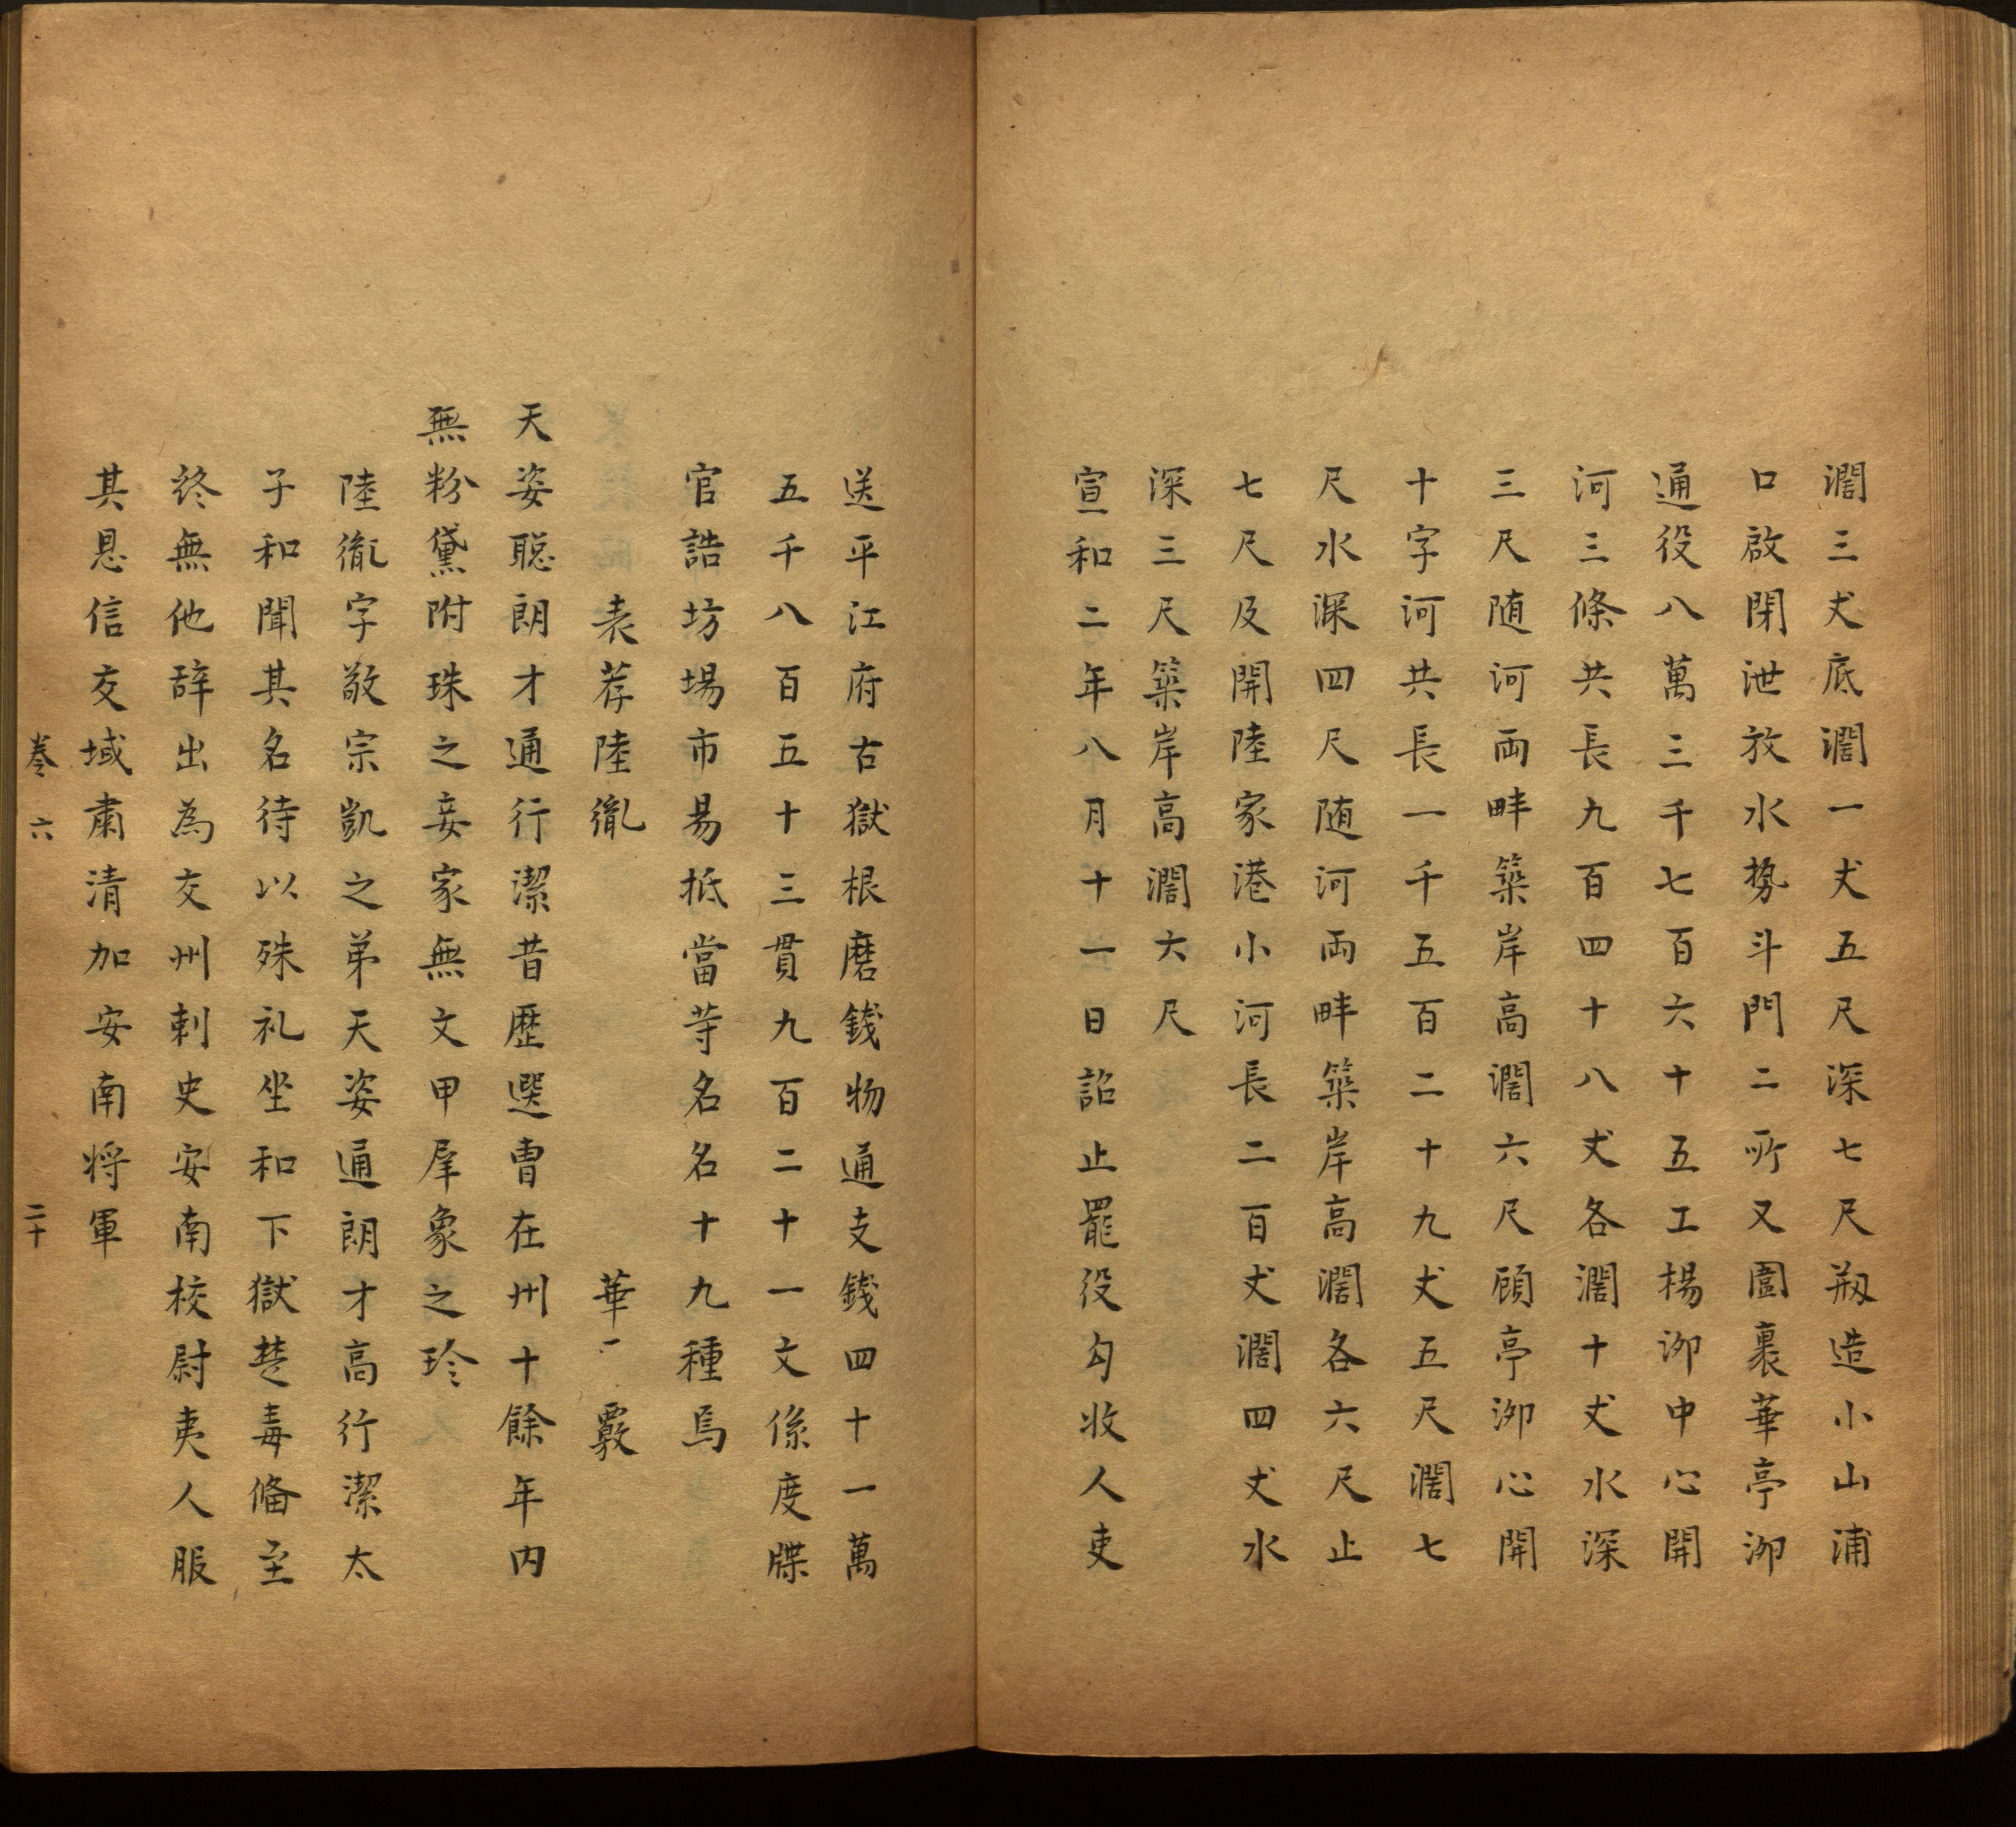 濶三丈底濶一丈五尺深七尺剏造小山浦
口啟閉泄放水勢斗門二所又圍裹華亭泖
通役八萬三千七百六十五工楊泖中心開
河三條共長九百四十八丈各濶十丈水深
三尺随河両畔築岸高濶六尺顧亭泖心開
十字河共長一千五百二十九丈五尺濶七
尺水深四尺随河両畔築岸高濶各六尺止
七尺及開陸家港小河長二百丈濶四丈水
深三尺築岸高濶六尺
宣和二年八月十一日詔止罷役勾收人吏
送平江府古獄根磨錢物通支錢四十一萬
五千八百五十三貫九百二十一文係度牒
官誥坊場市易抵當等名名十九種焉
表荐陸胤　華覈
天姿聡朗才通行潔昔歴選曹在州十餘年内
無粉黛附珠之妾家無文甲犀象之珍
陸胤字敬宗凱之弟天姿通朗才高行潔太
子和聞其名待以殊礼坐和下獄楚毒俻至
終無他辞出為交州刺史安南校尉夷人服
其恩信交域肅清加安南将軍
卷六
二十